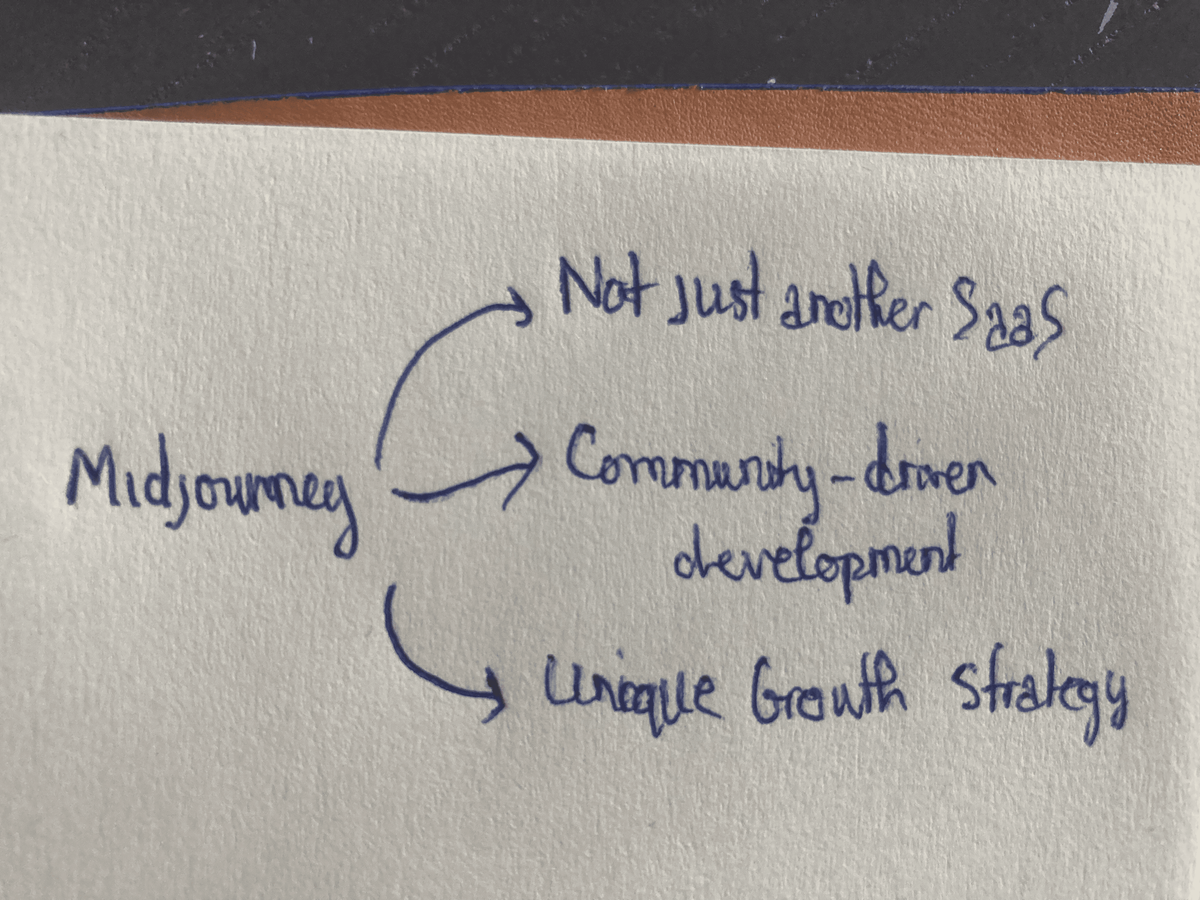 Not Just another SaaS
Midjourney
Community-driven
development
Unique Growth Strategy